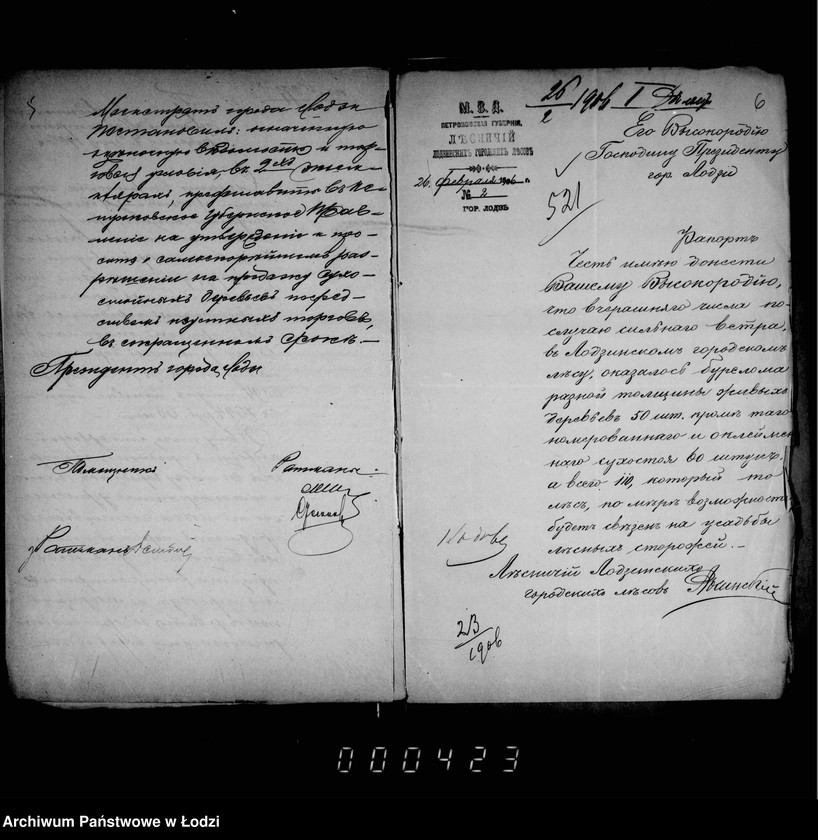 Магистратъ города Лодзи
постановилъ:
вѣдомость и тор-
говыя условія, въ 2хъ экзем-
плярахъ, представить въ Пе-
троковское Губернское Прав-
леніе на утвержденіе и про-
сить о
разрѣшеніи на продажу сухо-
стойныхъ деревьевъ посред-
ствомъ изустныхъ торговъ,
въ сокращенномъ срокѣ.—
Президентъ города Лодзи
Ратманы:
6
М. В. Д.
ПЕТРОКОВСКАЯ ГУБЕРНІЯ.
ЛѢСНИЧІЙ
ЛОДЗИНСКИХЪ ГОРОДСКИХЪ ЛѢСОВЪ
26 Февраля 1906 г.
№ 8
ГОР. ЛОДЗЬ
26/2 1906 I
521
Его Высокородію
Господину Президенту
гор Лодзи
Рапортъ
Честь имѣю донести
Вашему Высокородію,
что вчерашняго числа по
случаю сильнаго вѣтра,
въ Лодзинскомъ городскомъ
лѣсу, оказалось бурелома
разной толщины живыхъ
деревьевъ 50 шт. кромѣ таго
номерованнаго и оклеймен
наго сухостоя 60 штукъ,
а всего 110, который то
лѣсъ, по мѣрѣ возможности
будетъ свезенъ на усадьбы
лѣсныхъ сторожей.—
Лѣсничій Лодзинскихъ
городскихъ лѣсовъ
1906
000423
Archiwum Państwowe w Łodzi